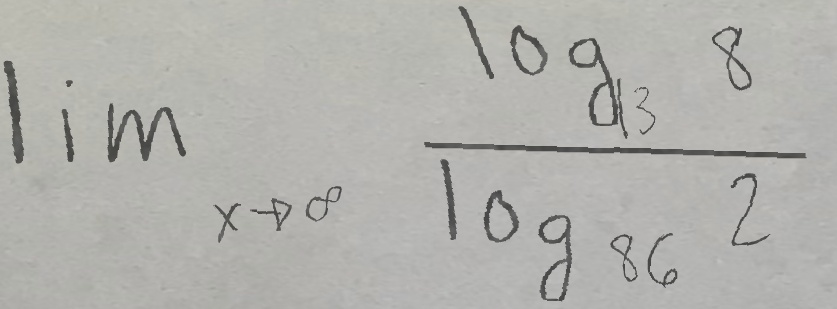 lim x→∞ log₁₃ 8 / log₈₆ 2